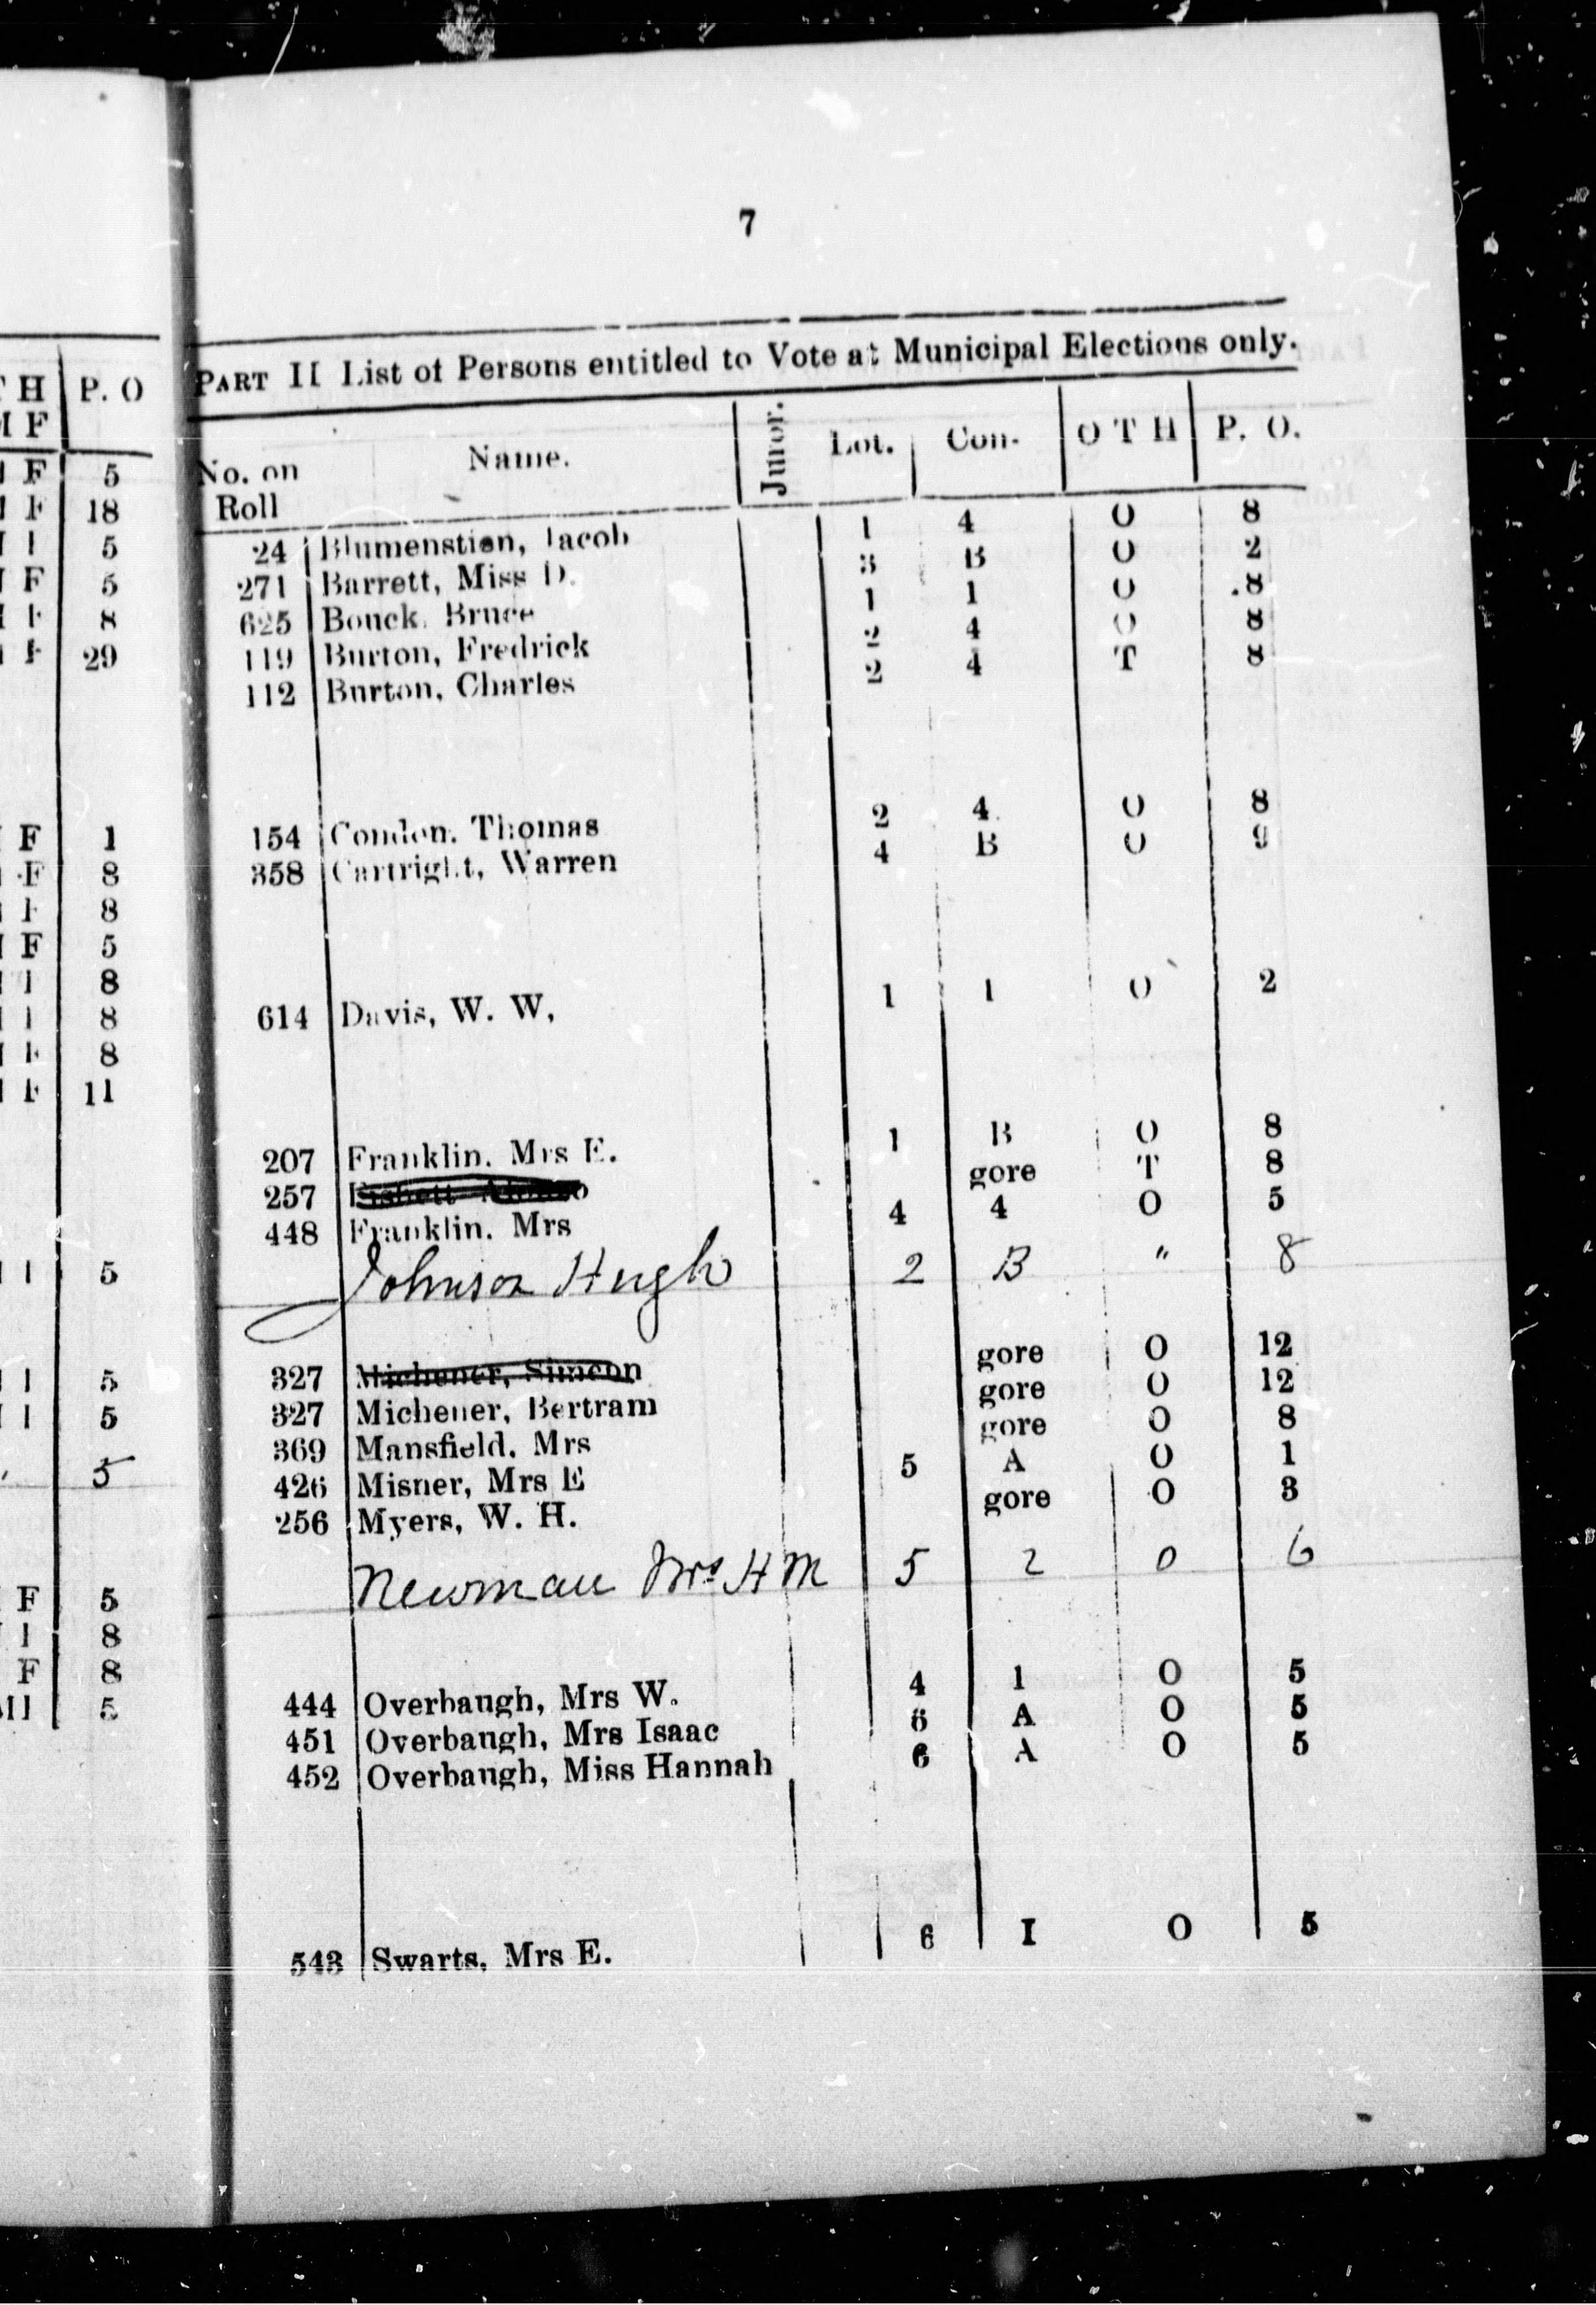 T H P. O
M F
F 5
F 18
I 5
F 5
F 8
F 29
F 1
F 8
F 8
F 5
I 8
I 8
F 8
F 11
I 5
I 5
I 5
" 5
F 5
I 8
F 8
MI 5
7
PART II List of Persons entitled to Vote at Municipal Elections only.
No. on Roll Name. Junor. Lot. Con. O T H P. O.
24 Blumenstien, Jacob 1 4 O 8
271 Barrett, Miss D. 3 B O 2
625 Bouck, Bruce 1 1 O 8
119 Burton, Fredrick 2 4 O 8
112 Burton, Charles 2 4 T 8
154 Comden. Thomas 2 4 O 8
358 Cartright, Warren 4 B O 9
614 Davis, W. W, 1 1 O 2
207 Franklin. Mrs E. 1 B O 8
257 gore T 8
448 Franklin. Mrs 4 4 O 5
Johnson Hugh 2 B " 8
327 Michener, Simeon gore O 12
327 Michener, Bertram gore O 12
369 Mansfield. Mrs gore O 8
426 Misner, Mrs E 5 A O 1
256 Myers, W. H. gore O 3
Newman Mrs H M 5 2 O 6
444 Overbaugh, Mrs W. 4 1 O 5
451 Overbaugh, Mrs Isaac 6 A O 5
452 Overbaugh, Miss Hannah 6 A O 5
543 Swarts, Mrs E. 6 I O 5